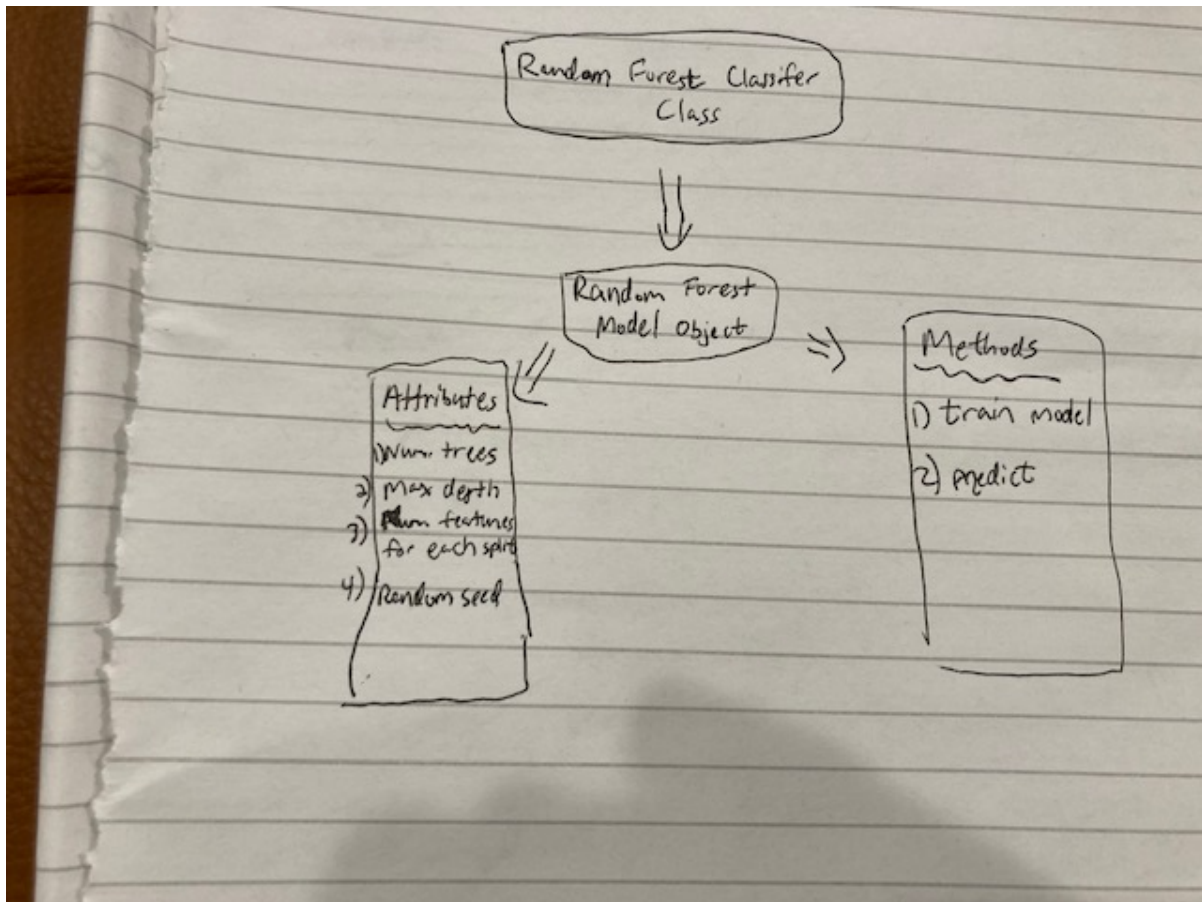 Random Forest Classifer
Class
Random Forest
Model Object
Attributes
1) Num. trees
2) Max depth
3) Num features
for each split
4) Random seed
Methods
1) train model
2) predict